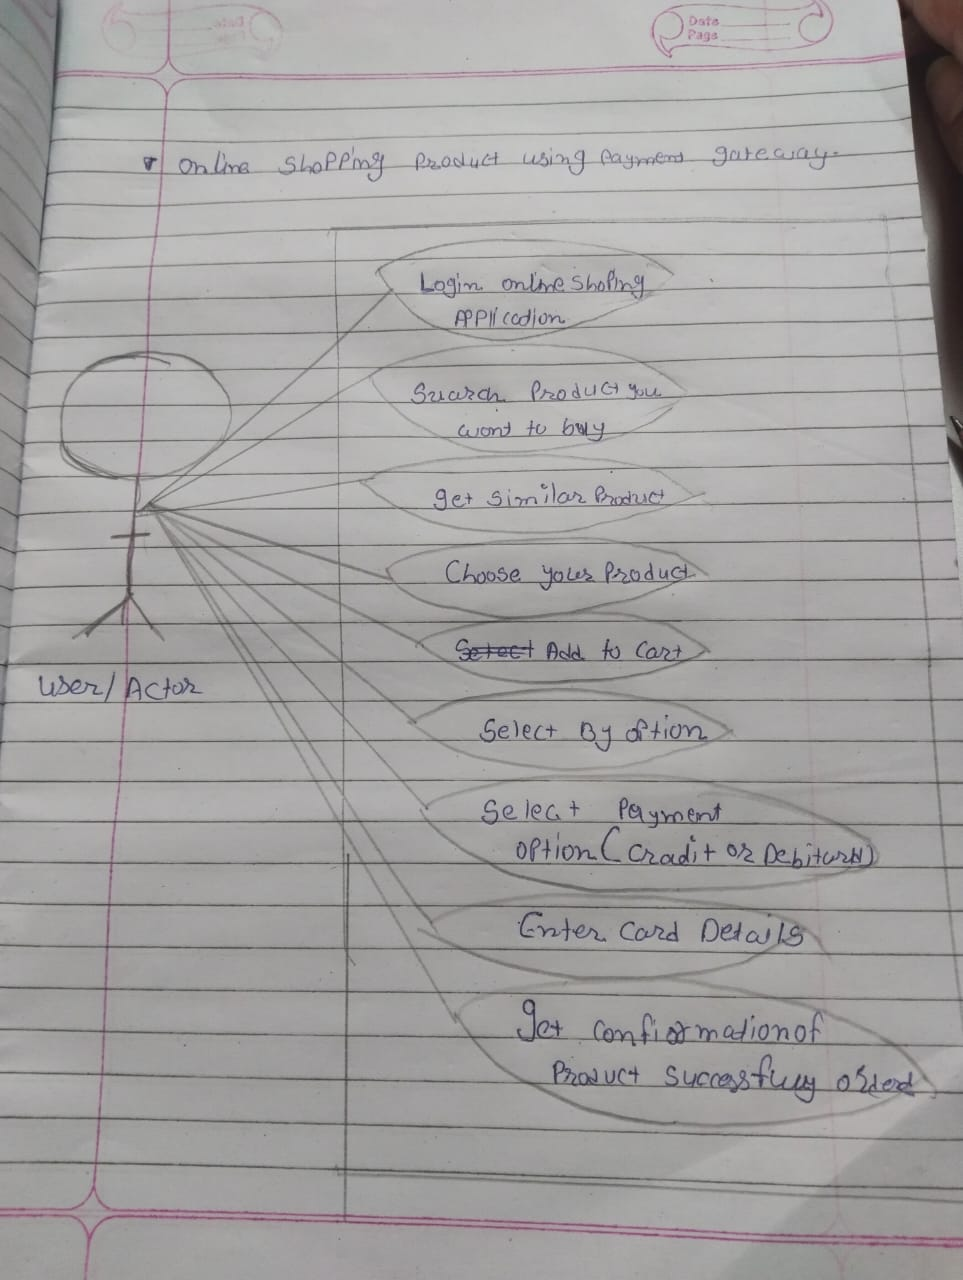 Date
Page
Online Shopping Product using Payment gateway.
Login online shoping
Application
Search Product you
wont to buy
get similar Product
Choose your Product
Select Add to Cart
User/Actor
Select By option
Select Payment
option (Cradit or Debitcard)
Enter Card Details
get confirmation of
Product Successfuly orderd